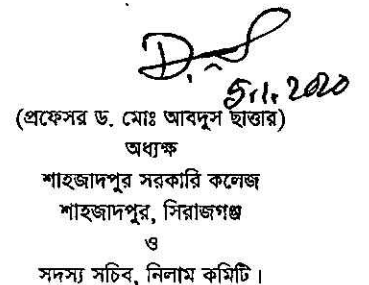 5.1.2020
(প্রফেসর ড. মোঃ আবদুস ছাত্তার)
অধ্যক্ষ
শাহজাদপুর সরকারি কলেজ
শাহজাদপুর, সিরাজগঞ্জ
ও
সদস্য সচিব, নিলাম কমিটি।